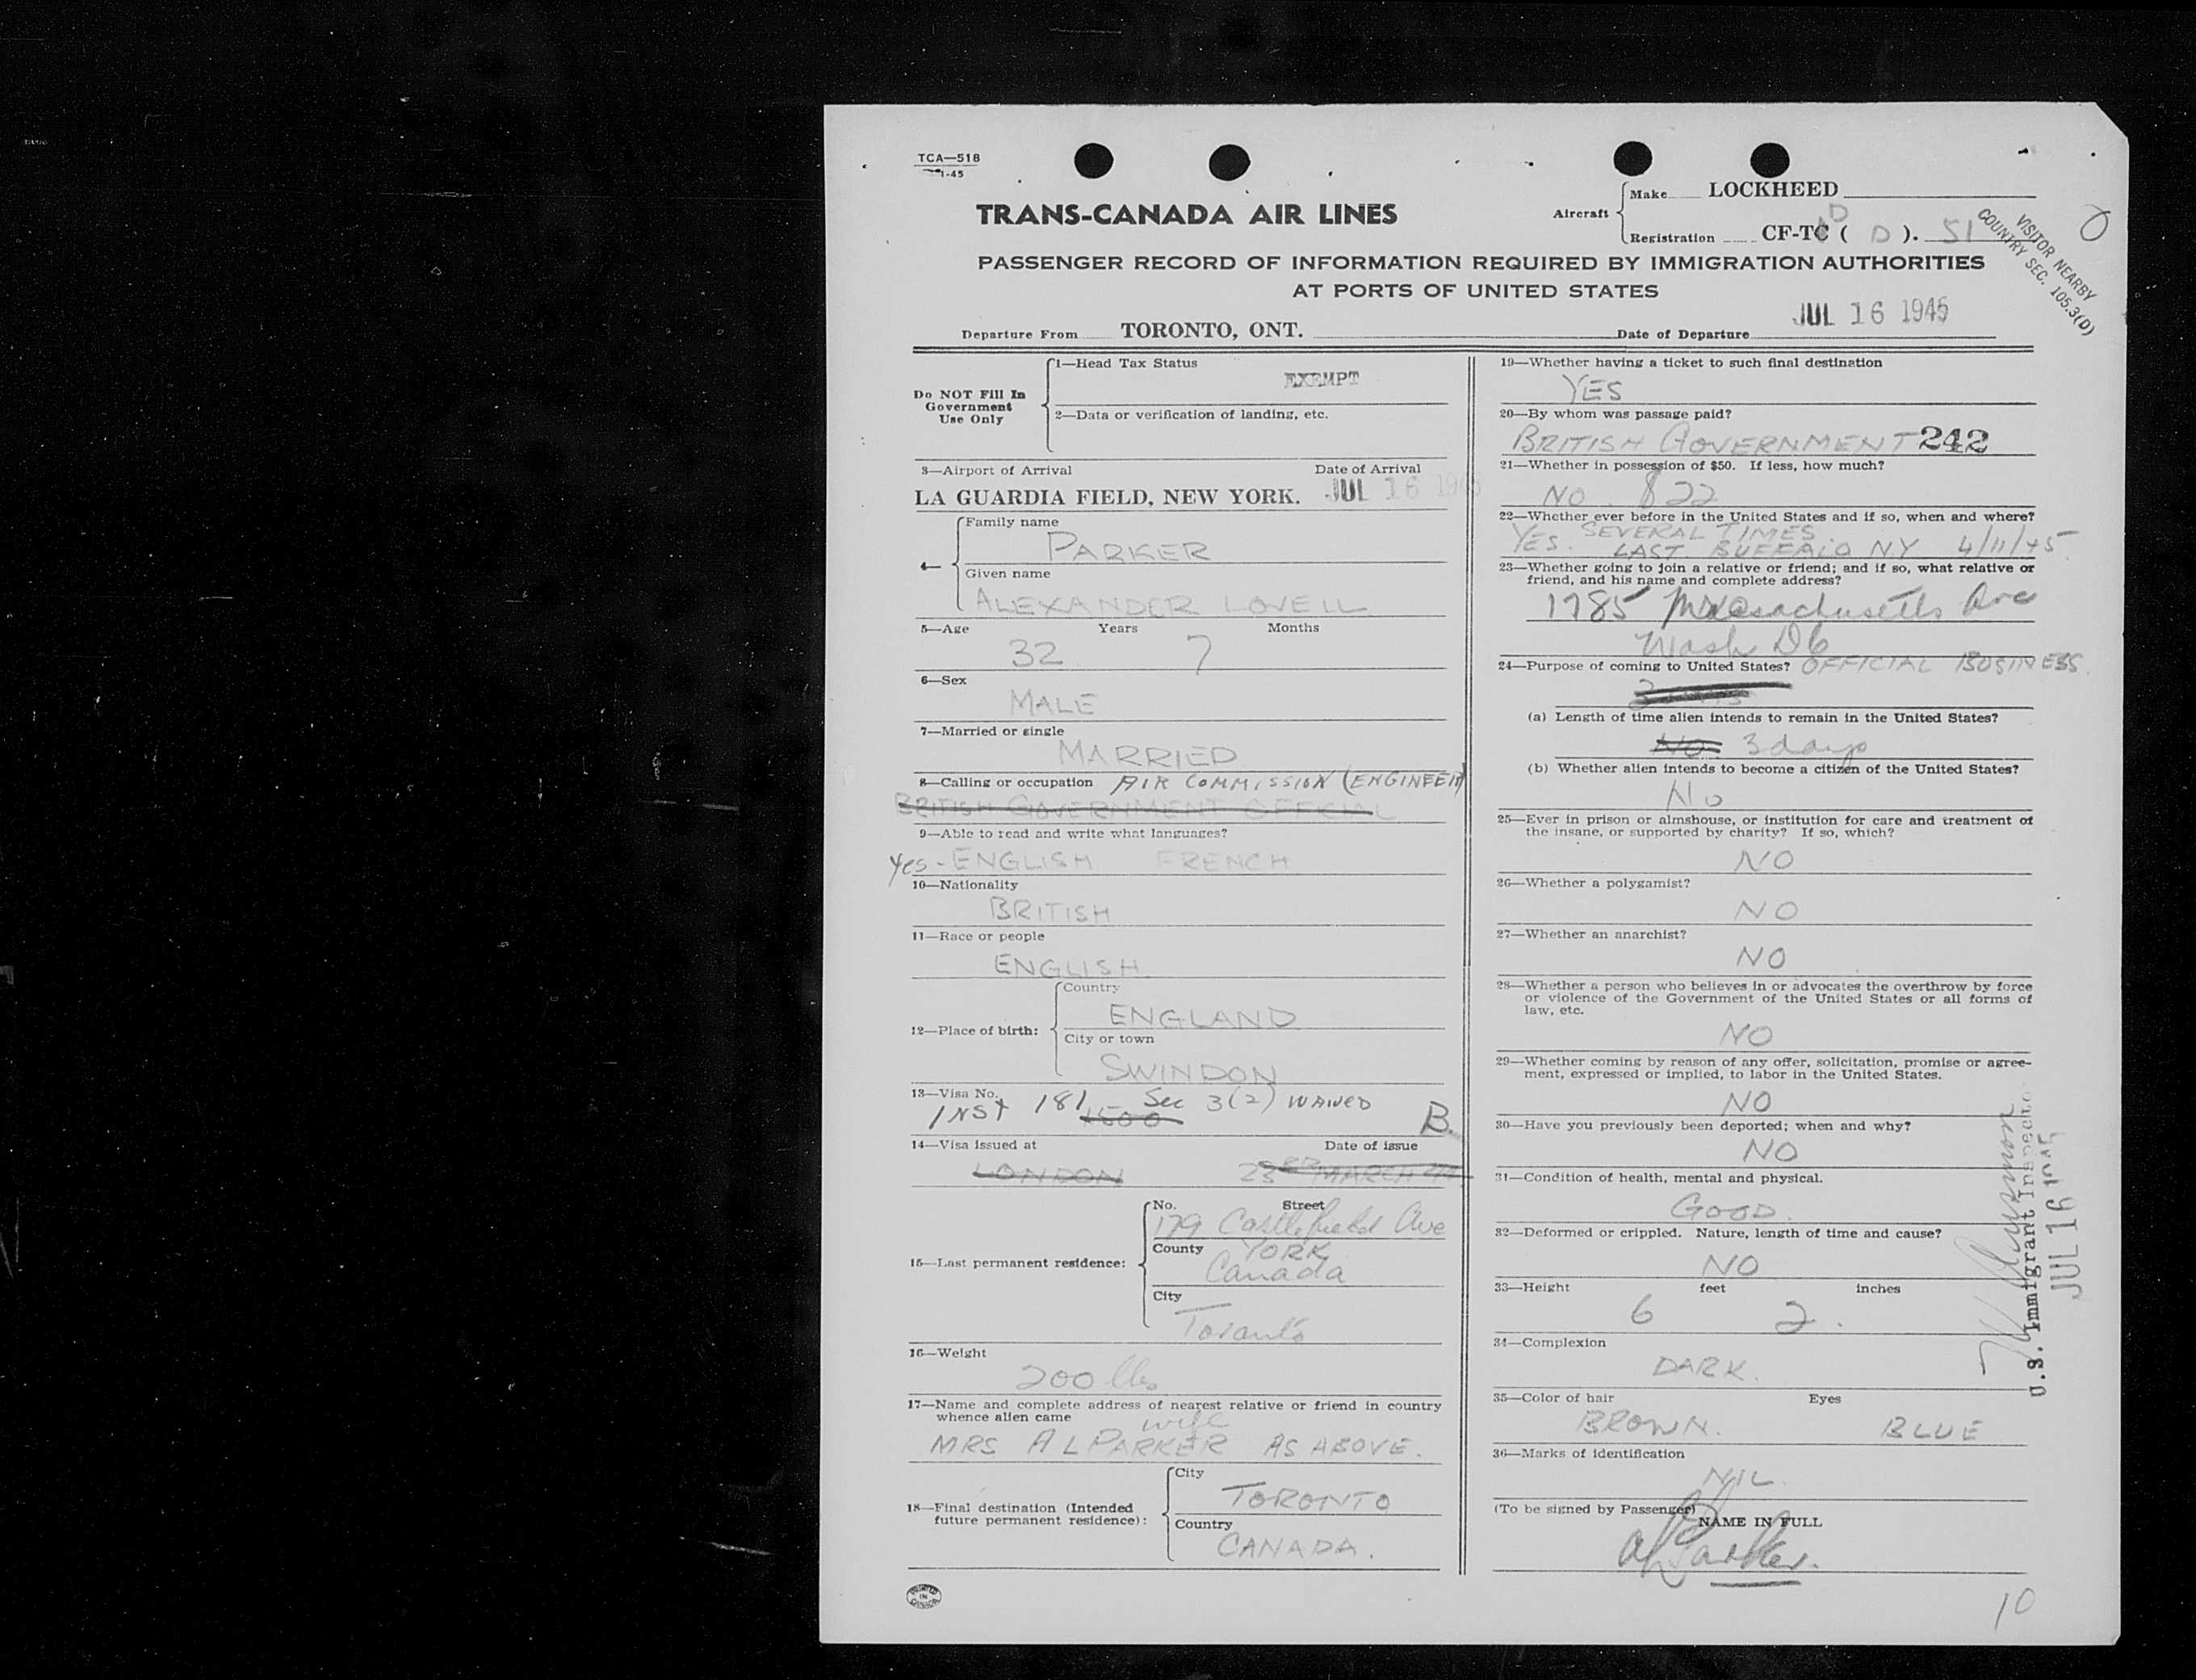 TCA—518
1-45
TRANS-CANADA AIR LINES
Aircraft
Make LOCKHEED
Registration CF-TC ( D ). 51
D
VISITOR NEARBY
COUNTRY SEC. 105.3(D)
PASSENGER RECORD OF INFORMATION REQUIRED BY IMMIGRATION AUTHORITIES
AT PORTS OF UNITED STATES
Departure From TORONTO, ONT. Date of Departure JUL 16 1945
Do NOT Fill In
Government
Use Only
1—Head Tax Status
EXEMPT
2—Data or verification of landing, etc.
3—Airport of Arrival Date of Arrival
LA GUARDIA FIELD, NEW YORK. JUL 16 194
4—
Family name
PARKER
Given name
ALEXANDER LOVELL
5—Age Years Months
32 7
6—Sex
MALE
7—Married or single
MARRIED
8—Calling or occupation AIR COMMISSION (ENGINEER)
BRITISH GOVERNMENT OFFICIAL
9—Able to read and write what languages?
Yes - ENGLISH FRENCH
10—Nationality
BRITISH
11—Race or people
ENGLISH.
12—Place of birth:
Country
ENGLAND
City or town
SWINDON
13—Visa No.
INST 181 1500 Sec 3(2) WAIVED B.
14—Visa issued at Date of issue
LONDON 23RD MARCH 44
15—Last permanent residence:
No. Street
179 Castlefield Ave
County YORK
Canada
City
Toronto
16—Weight
200 lbs
17—Name and complete address of nearest relative or friend in country
whence alien came
wife
MRS A L PARKER AS ABOVE.
18—Final destination (Intended
future permanent residence):
City
TORONTO
Country
CANADA.
PRINTED
IN
CANADA
19—Whether having a ticket to such final destination
YES
20—By whom was passage paid?
BRITISH GOVERNMENT 242
21—Whether in possession of $50. If less, how much?
NO. $22
22—Whether ever before in the United States and if so, when and where?
YES. SEVERAL TIMES
LAST BUFFALO N.Y 4/11/45
23—Whether going to join a relative or friend; and if so, what relative or
friend, and his name and complete address?
1785 Massachusetts Ave
Wash DC
24—Purpose of coming to United States? OFFICIAL BUSINESS
(a) Length of time alien intends to remain in the United States?
No. 3 days
(b) Whether alien intends to become a citizen of the United States?
No
25—Ever in prison or almshouse, or institution for care and treatment of
the insane, or supported by charity? If so, which?
NO
26—Whether a polygamist?
NO
27—Whether an anarchist?
NO
28—Whether a person who believes in or advocates the overthrow by force
or violence of the Government of the United States or all forms of
law, etc.
NO
29—Whether coming by reason of any offer, solicitation, promise or agree-
ment, expressed or implied, to labor in the United States.
NO
30—Have you previously been deported; when and why?
NO
31—Condition of health, mental and physical.
GOOD.
32—Deformed or crippled. Nature, length of time and cause?
NO
33—Height feet inches
6 2.
34—Complexion
DARK.
35—Color of hair Eyes
BROWN. BLUE
36—Marks of identification
NIL.
(To be signed by Passenger)
NAME IN FULL
A L Parker.
U.S. Immigrant Inspector
JUL 16 1945
10